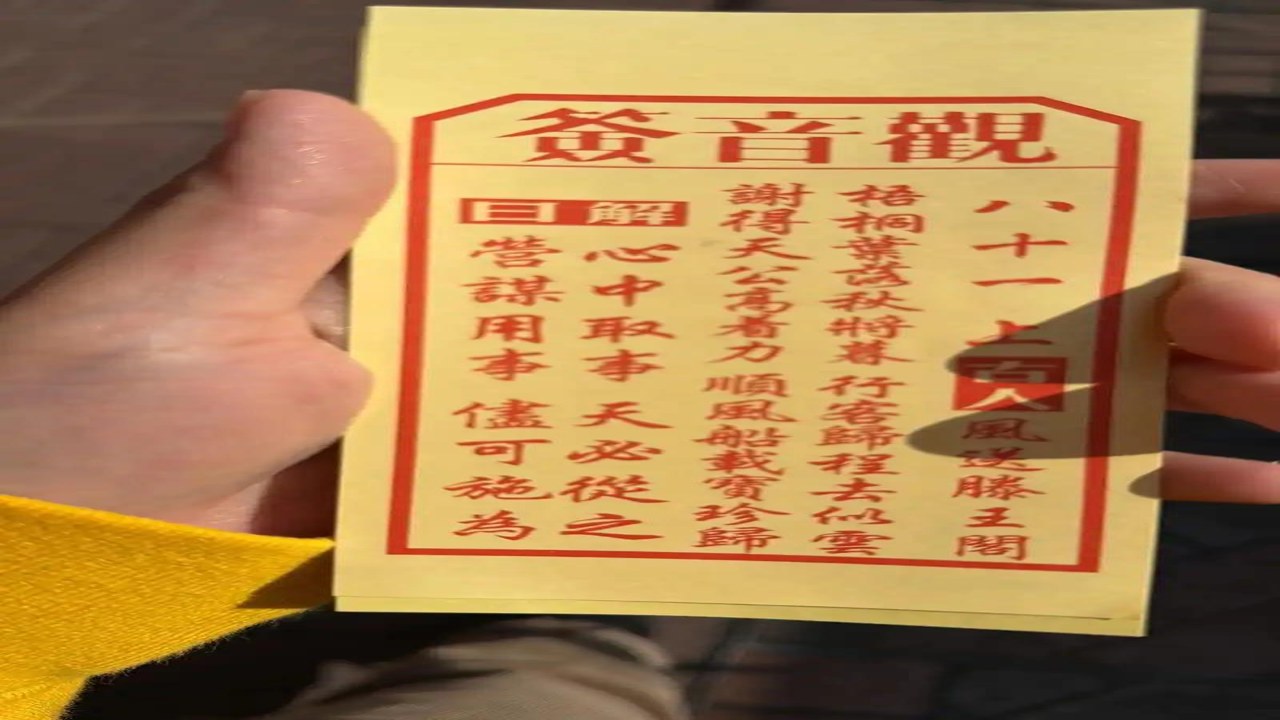 觀音簽
八十一 上 古人 風送滕王閣
梧桐葉落秋將暮 行客歸程去似雲
謝得天公高着力 順風船載寶珍歸
解曰
心中取事 天必從之
營謀用事 儘可施為